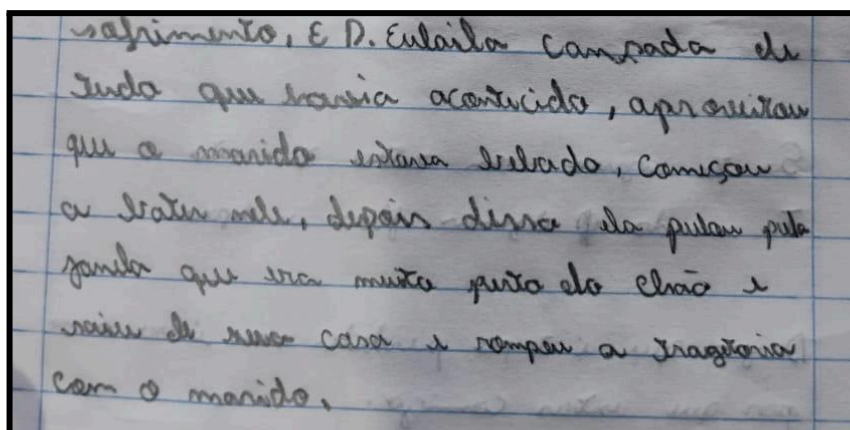 sofrimento, E D. Eulaila cansada de
tudo que havia acontecido, aproveitou
que o marido estava bebado, começou
a bater nele, depois disso ela pulou pela
janela que era muito perto do chão e
saiu de sua casa e rompeu a tragetoria
com o marido.